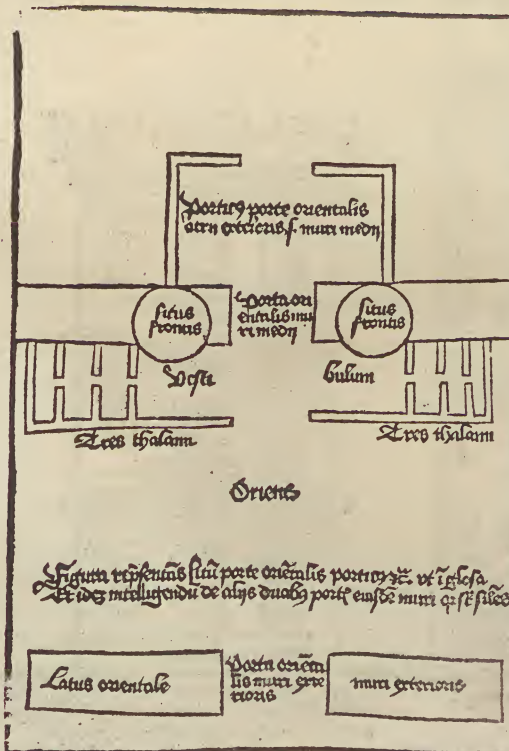 Porticꝰ porte orientalis
atrii exterioris .s. muri medij
situs
frontis
Porta ori
entalis mu
ri medij
situs
frontis
Vesti
bulum
Tres thalami
Tres thalami
Oriens
Figura rep̃sentãs sitũ porte oriẽtalis porticꝰ ꝛc̃. vt ĩ glosa
Et idẽ intelligendũ de alijs duabꝰ port eiusdẽ muri
Latus orientale
Porta oriẽta
lis muri exte
rioris
muri exterioris